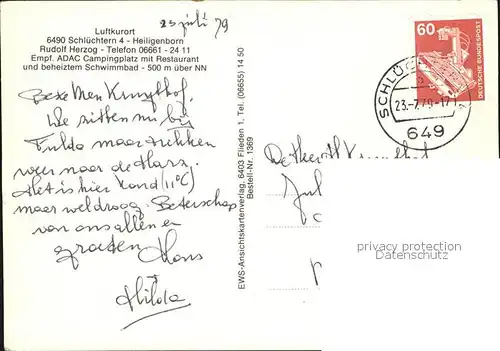 23 juli 79
Luftkurort
6490 Schlüchtern 4 - Heiligenborn
Rudolf Herzog - Telefon 06661 - 24 11
Empf. ADAC Campingplatz mit Restaurant
und beheiztem Schwimmbad - 500 m über NN
Beste Men Kruythof.
We zitten nu bij
Fulda maar trekken
weer naar de Harz.
Het is hier koud (11°C)
maar wel droog. Beterschap
van ons allen en
groeten Hans
Hilda
EWS-Ansichtskartenverlag, 6403 Flieden 1, Tel. (06655) 14 50
Bestell-Nr. 1369
60
DEUTSCHE BUNDESPOST
23.-7.79-17
649
privacy protection
Datenschutz